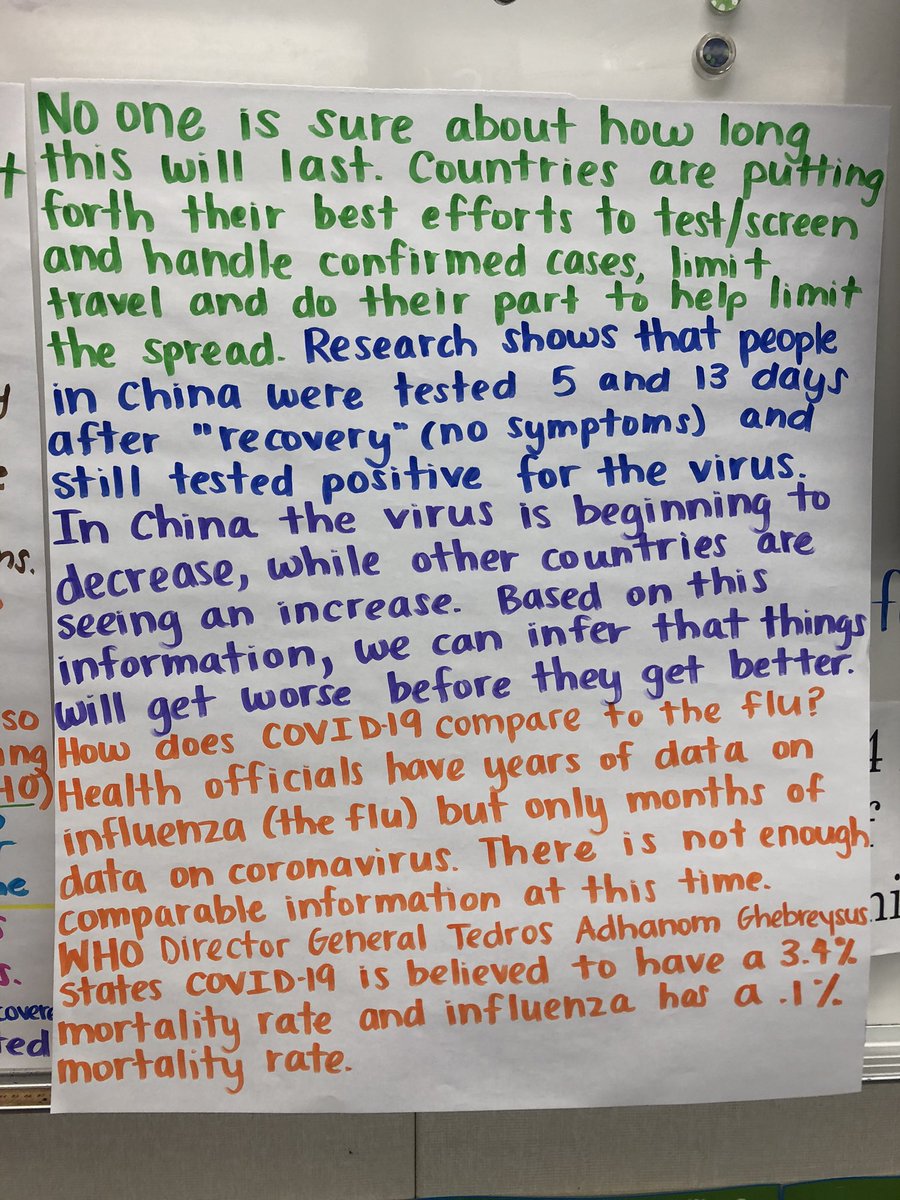 No one is sure about how long
this will last. Countries are putting
forth their best efforts to test/screen
and handle confirmed cases, limit
travel and do their part to help limit
the spread. Research shows that people
in China were tested 5 and 13 days
after "recovery" (no symptoms) and
still tested positive for the virus.
In China the virus is beginning to
decrease, while other countries are
seeing an increase. Based on this
information, we can infer that things
will get worse before they get better.
How does COVID-19 compare to the flu?
Health officials have years of data on
influenza (the flu) but only months of
data on coronavirus. There is not enough
comparable information at this time.
WHO Director General Tedros Adhanom Ghebreysus
states COVID-19 is believed to have a 3.4%
mortality rate and influenza has a .1%
mortality rate.
so